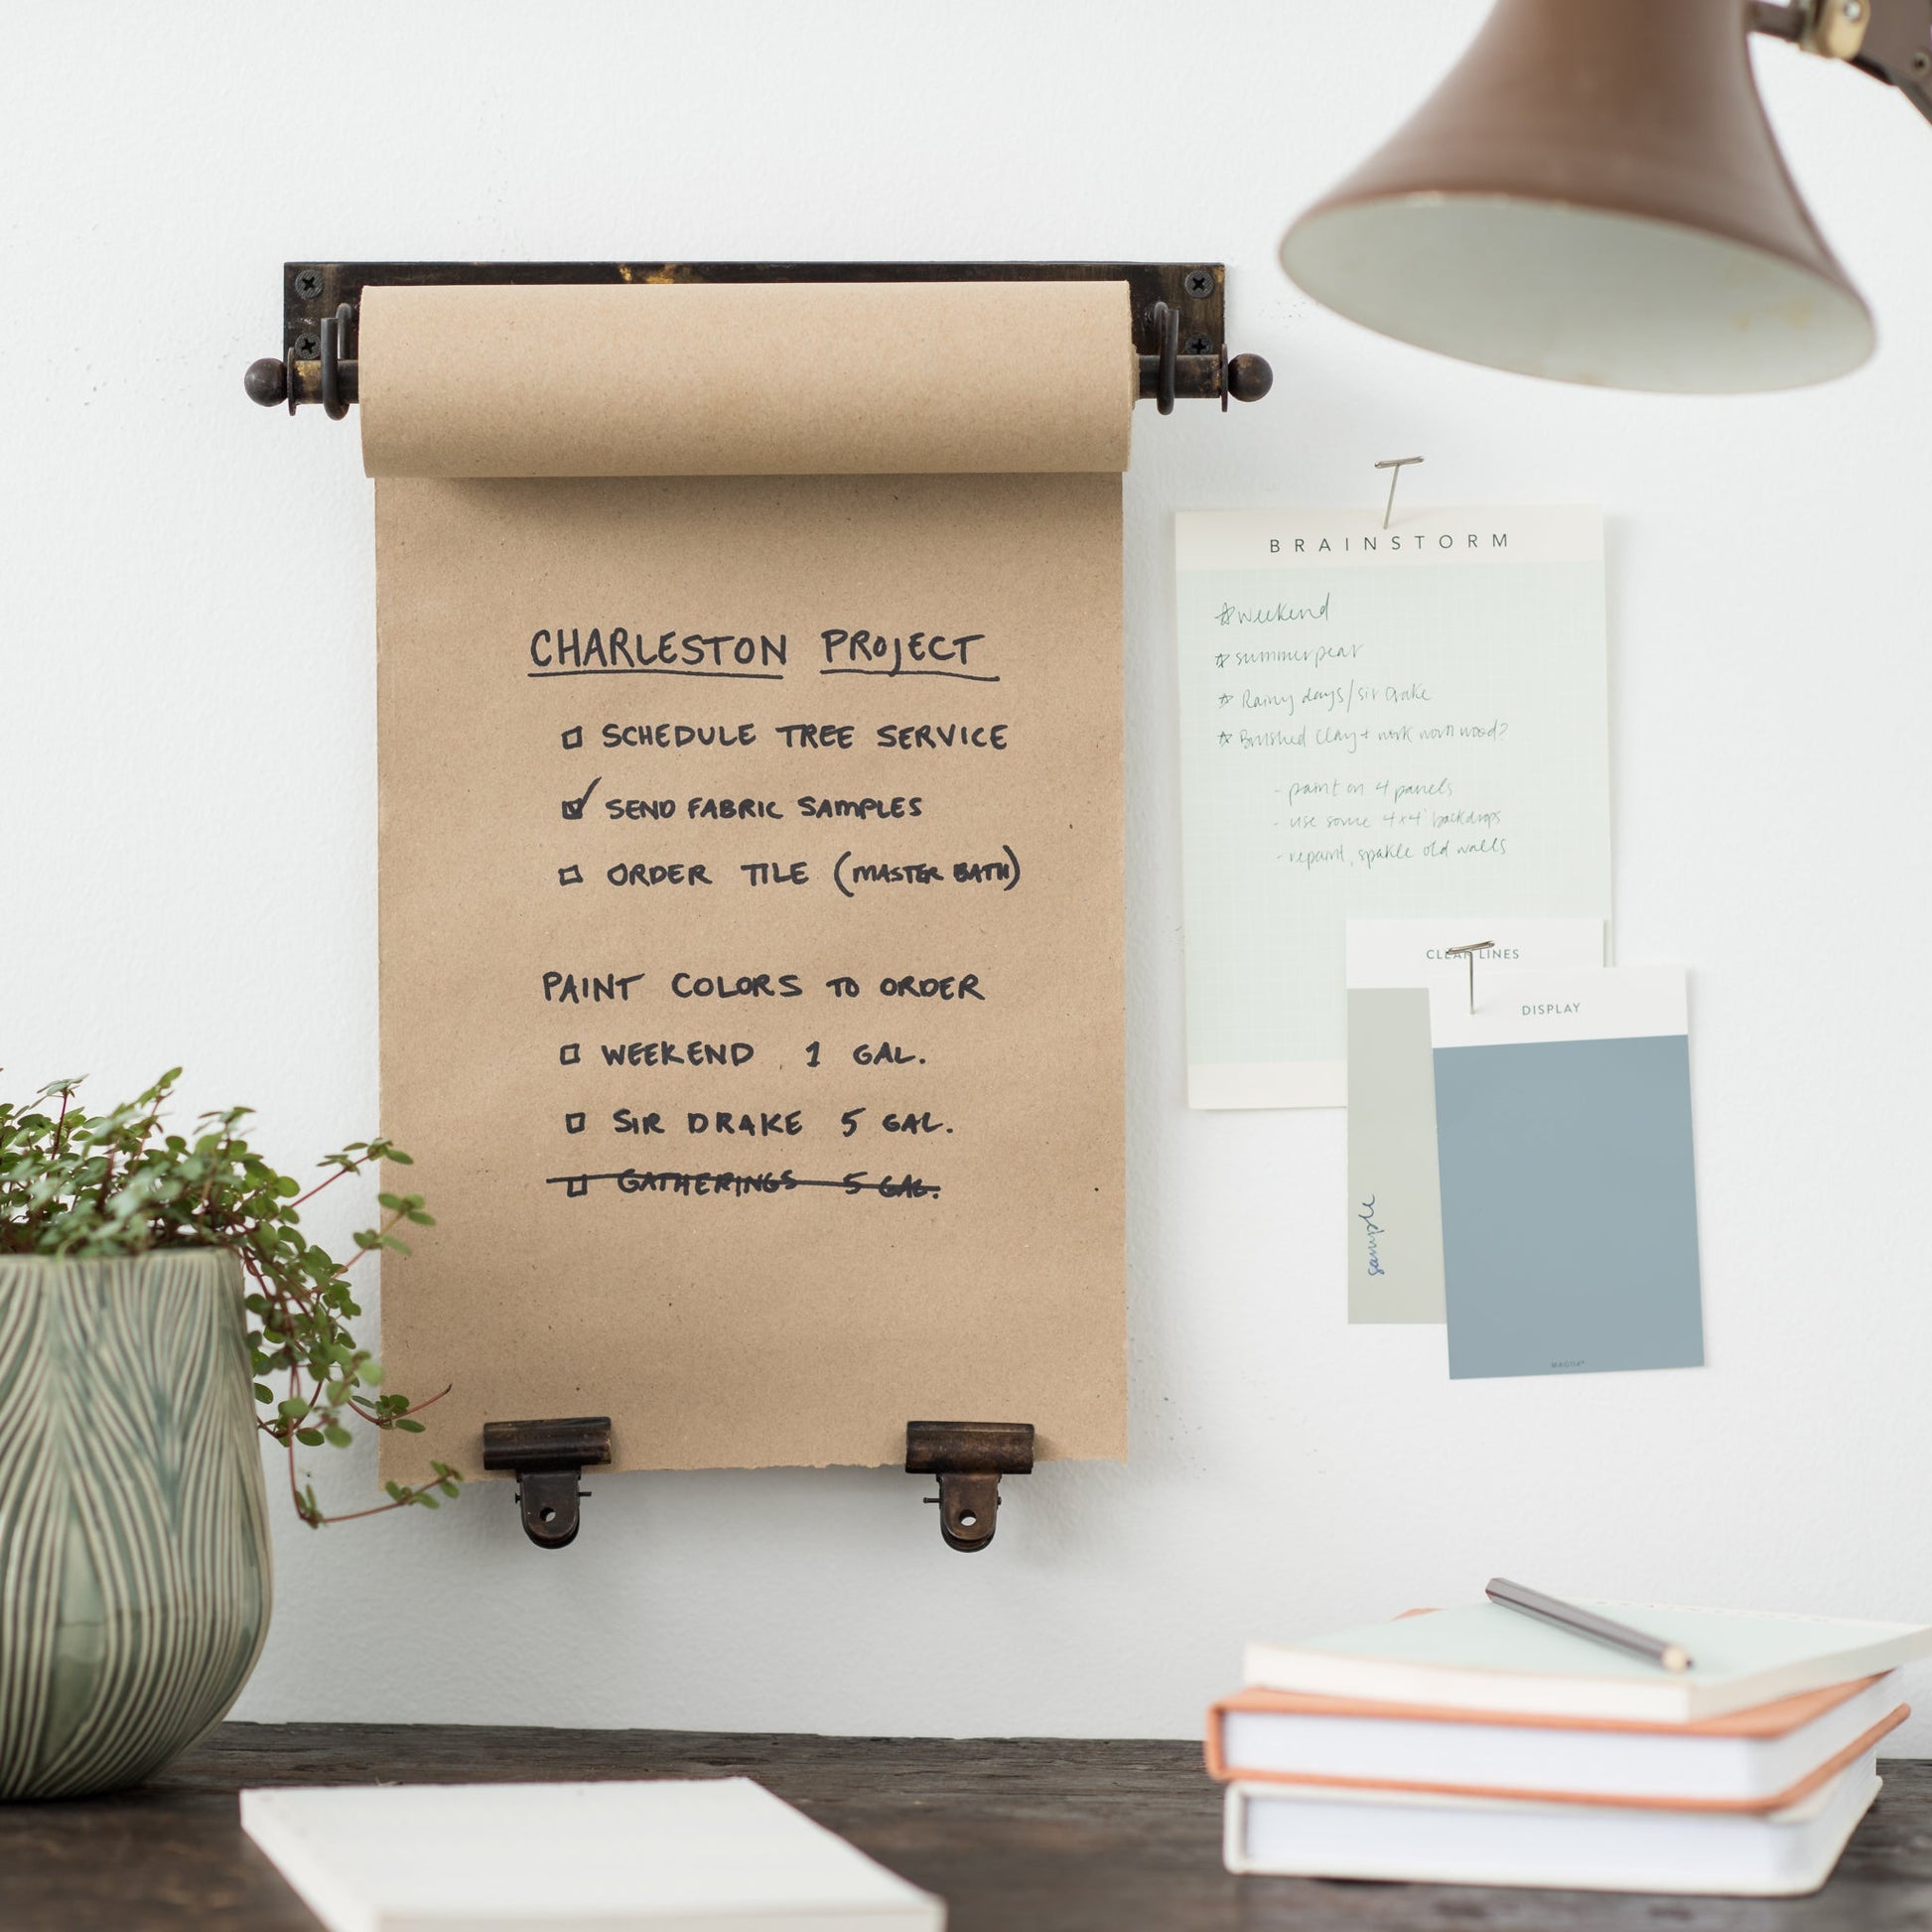 CHARLESTON PROJECT
SCHEDULE TREE SERVICE
SEND FABRIC SAMPLES
ORDER TILE (MASTER BATH)
PAINT COLORS TO ORDER
WEEKEND 1 GAL.
SIR DRAKE 5 GAL.
GATHERINGS 5 GAL.
BRAINSTORM
weekend
summer pear
Rainy days/sir Drake
Brushed Clay + work worn wood?
- paint on 4 panels
- use some 4x4' backdrops
- repaint, spakle old walls
CLEAN LINES
DISPLAY
sample